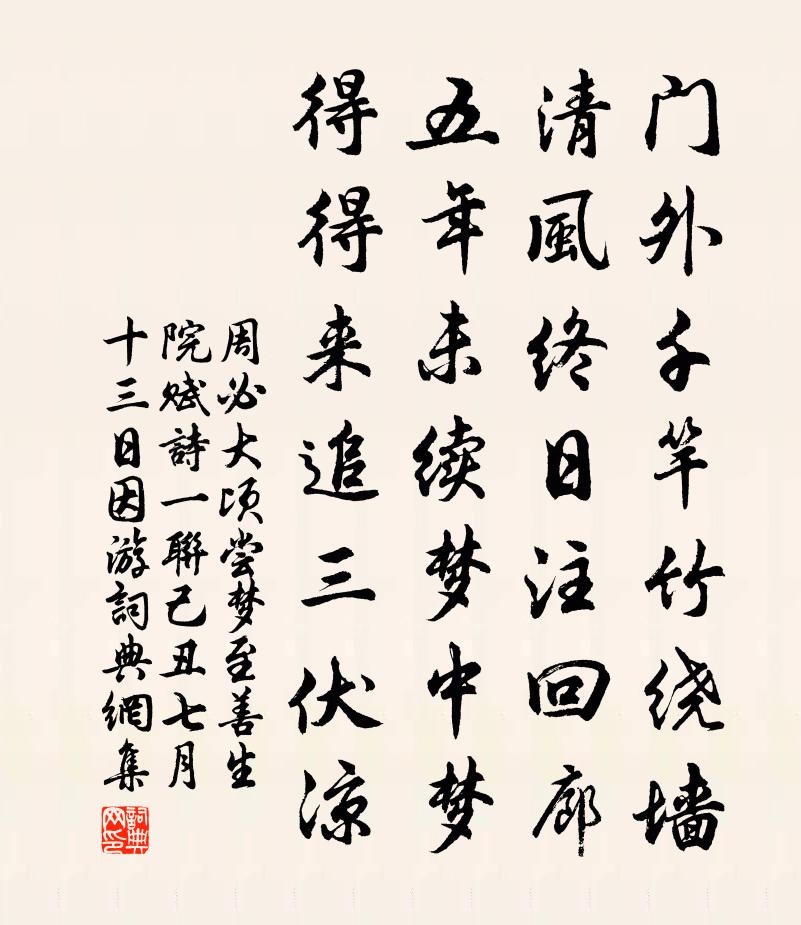 门外千竿竹绕墙
清風终日注回廊
五年未续梦中梦
得得来追三伏凉
周必大顷尝梦至善生
院赋詩一聯己丑七月
十三日因游詞典網集
詞典
网印